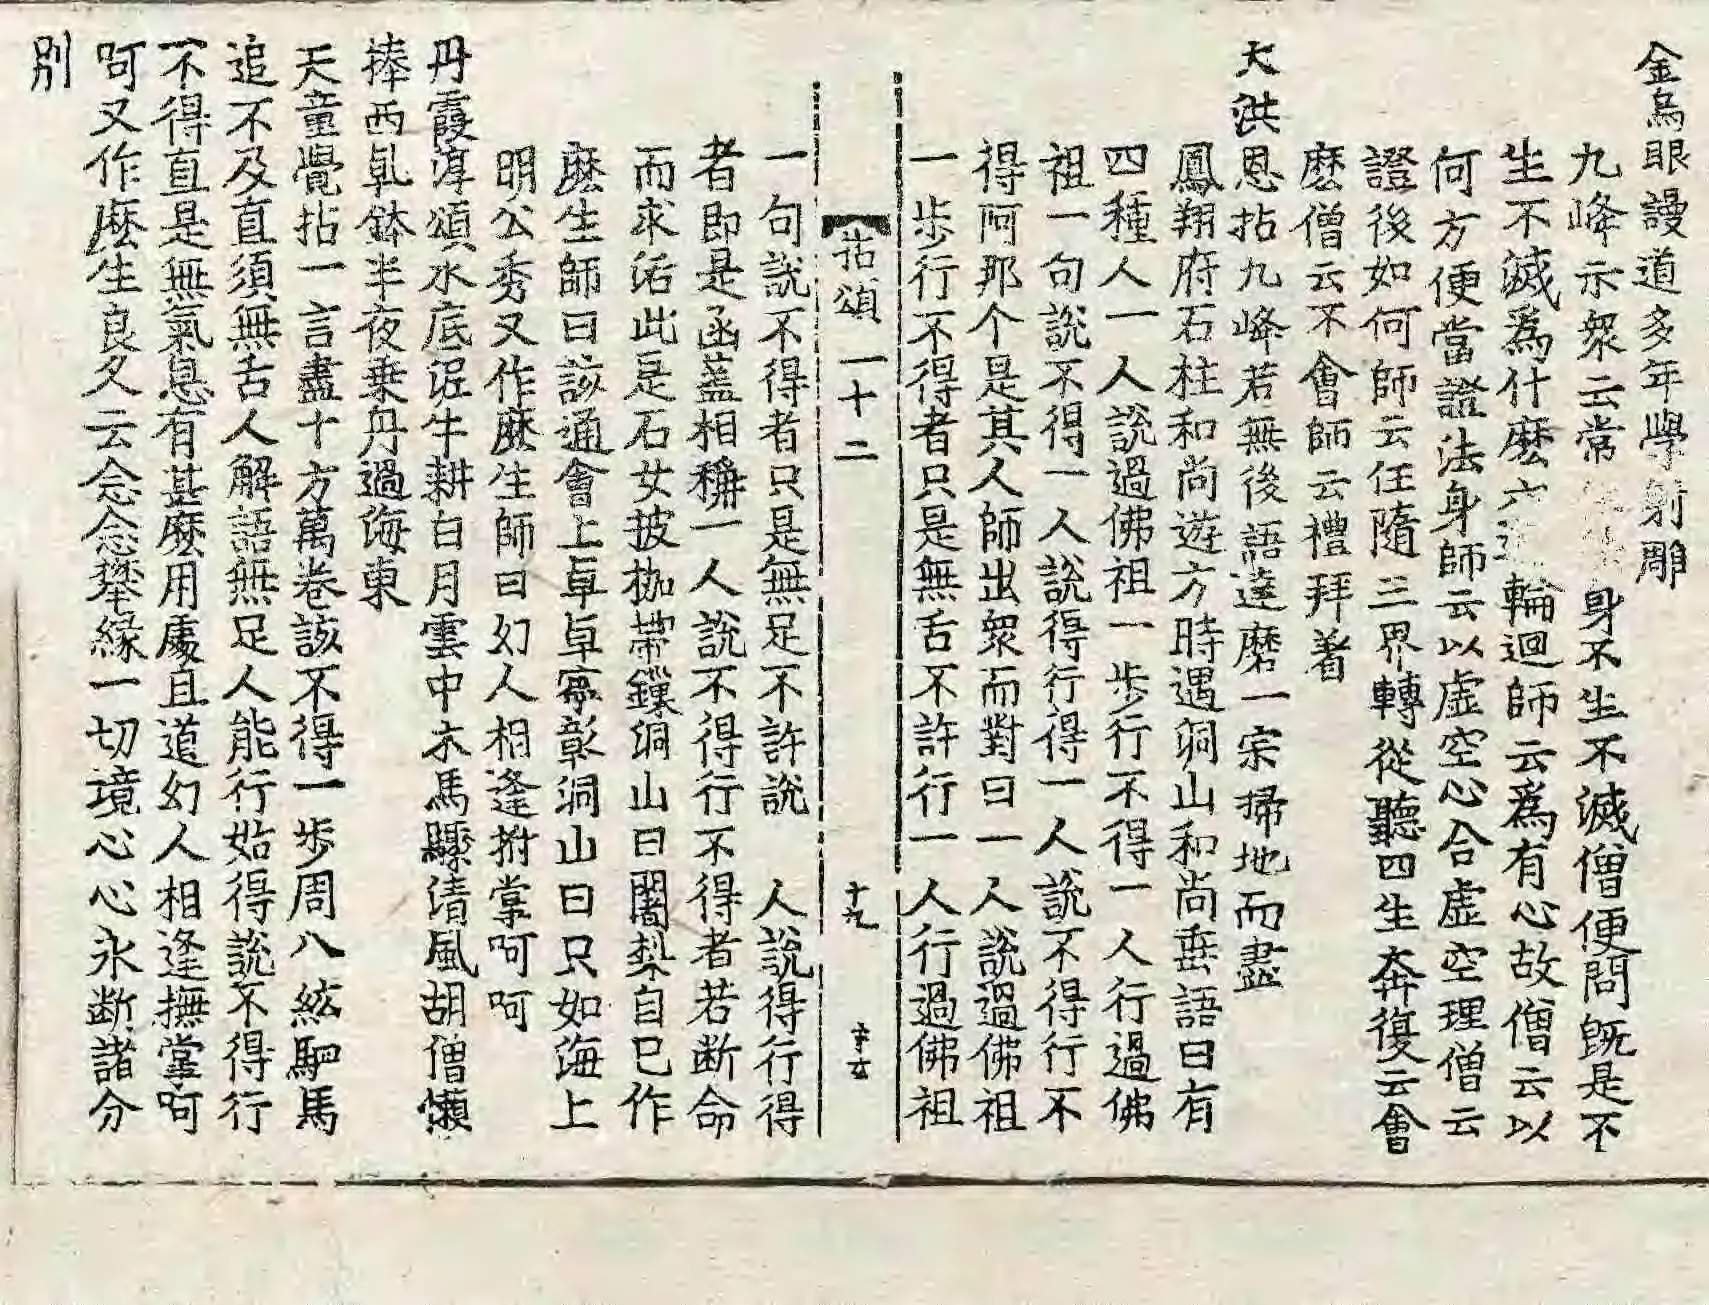 金烏眼謾道多年學射雕
九峰示眾云常身不生不滅僧便問既是不
生不滅爲什麽六道輪迴師云爲有心故僧云以
何方便當證法身師云以虛空心合虛空理僧云
證後如何師云任隨三界轉從聽四生奔復云會
麽僧云不會師云禮拜著
大洪恩拈九峰若無後語達磨一宗掃地而盡
鳳翔府石柱和尚遊方時遇洞山和尚垂語曰有
四種人一人說過佛祖一步行不得一人行過佛
祖一句說不得一人說得行得一人說不得行不
得阿那个是其人師出眾而對曰一人說過佛祖
一步行不得者只是無舌不許行一人行過佛祖
拈頌一十二 十九
一句說不得者只是無足不許說 人說得行得
者即是函蓋相稱一人說不得行不得者若断命
而求活此是石女披枷帶鏁洞山曰闍梨自己作
麽生師曰該通會上卓卓寧彰洞山曰只如海上
明公秀又作麽生師曰幻人相逢拊掌呵呵
丹霞淳頌水底泥牛耕白月雲中木馬驟清風胡僧懶
捧西乹鉢半夜乗舟過海東
天童覺拈一言盡十方萬卷該不得一步周八紘駟馬
追不及直須無舌人解語無足人能行始得說不得行
不得直是無氣息有甚麽用處且道幻人相逢撫掌呵
呵又作麽生良久云念念攀緣一切境心心永断諸分
別